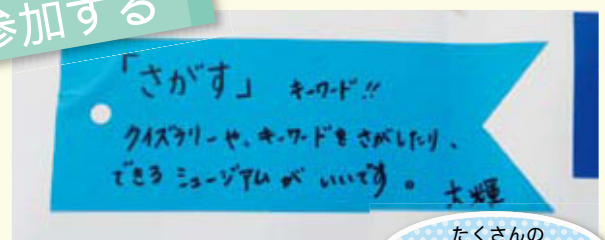 参加する
「さがす」 キーワード!!
クイズラリーや、キーワードをさがしたり、
できるミュージアムがいいです。 大輝
たくさんの